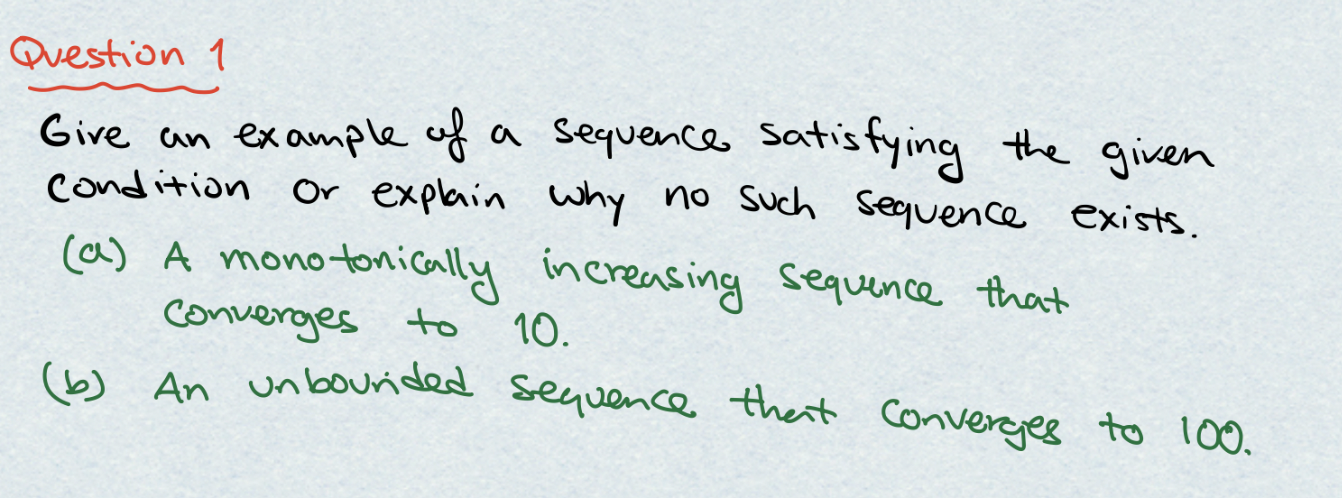 Question 1
Give an example of a sequence satisfying the given
condition or explain why no such sequence exists.
(a) A monotonically increasing sequence that
converges to 10.
(b) An unbounded sequence that converges to 100.